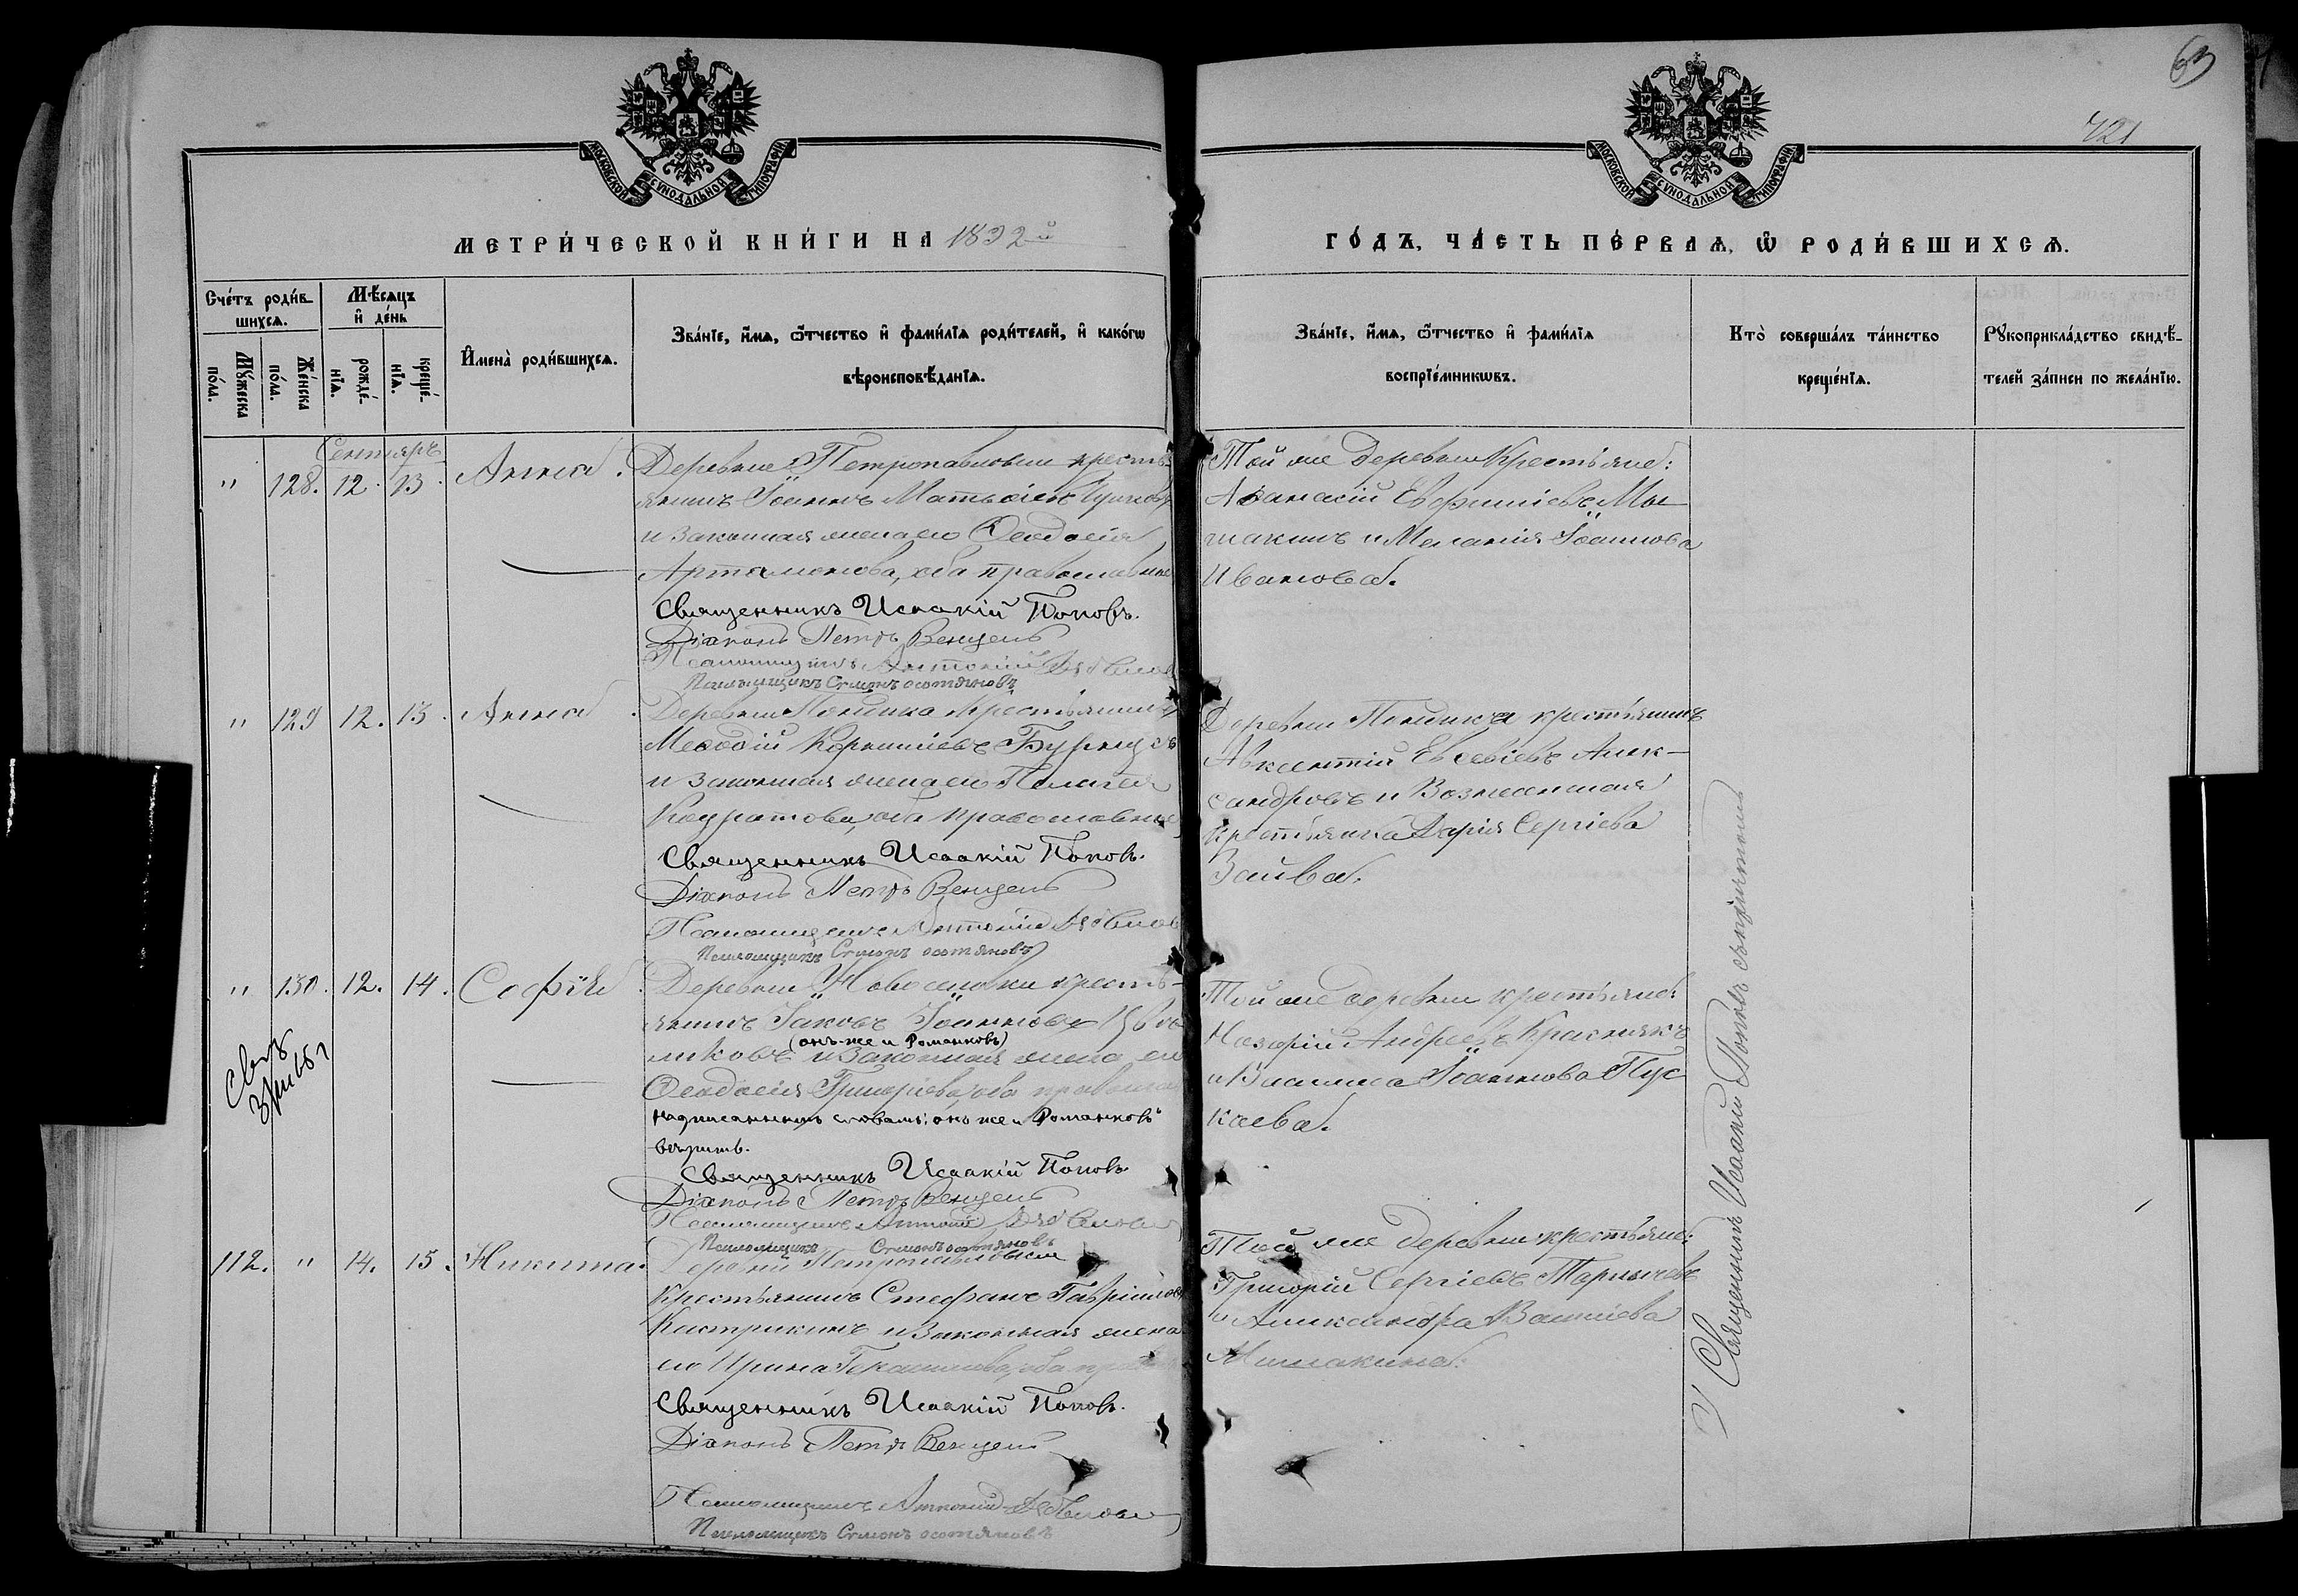 63
421
МОСКОВСКОЙ СѴНОДАЛЬНОЙ ТИПОГРАФІИ
МОСКОВСКОЙ СѴНОДАЛЬНОЙ ТИПОГРАФІИ
МЕТРИ́ЧЕСКОЙ КНИ́ГИ НА 1892й
ГО́ДЪ, ЧА́СТЬ ПЕ́РВАѦ, Ѿ РОДИ́ВШИХСѦ.
Сче́тъ роди́в
шихсѧ.
Мꙋ́жеска
по́ла.
Же́нска
по́ла.
Мѣ́сѧцъ
и҆ де́нь
рожде́-
нїѧ.
креще́-
нїѧ.
И҆мена̀ роди́вшихсѧ.
Зва́нїе, и҆́мѧ, ѻ҆́тчество и҆ фами́лїѧ роди́телей, и҆ како́гѡ
вѣроисповѣ́данїѧ.
Зва́нїе, и҆́мѧ, ѻ҆́тчество и҆ фами́лїѧ
воспрїе́мникѡвъ.
Кто̀ соверша́лъ та́инство
креще́нїѧ.
Рꙋкоприкла́дство свидѣ́-
телей за́писи по жела́нїю.
Сентябрь
" 128. 12. 13. Анна.
Деревни Петропавловки кресть-
янинъ Іоаннъ Матѳіевъ
и законная жена его Ѳеодосія
Артамонова, оба православные
Священникъ Исаакій Поповъ.
Діаконъ Петръ Венцель
Псаломщикъ Антоній
Псаломщикъ Симонъ
Той же деревни крестьяне:
Аѳанасій Евфиміевъ Мы-
шакинъ и Меланія Іоаннова
Иванова.
" 129 12. 13. Анна.
Деревни крестьянинъ
Меѳодій Корниліевъ
и законная жена его Пелагея
Кодратова, оба православные
Священникъ Исаакій Поповъ.
Діаконъ Петръ Венцель
Псаломщикъ Антоній
Псаломщикъ Симонъ
Деревни крестьянинъ
Авксентій Евсевіевъ Алек-
сандровъ и
крестьянка Дарія Сергіева
" 130. 12. 14. Софія.
Деревни Новоселовки кресть-
янинъ Іаковъ Іоанновъ
(онъ-же и Романковъ)
и законная жена его
Ѳеодосія Григоріева, оба
надписанному словамъ: "онъ же и Романковъ"
вѣрить.
Священникъ Исаакій Поповъ
Діаконъ Петръ Венцель
Псаломщикъ Антоній
Псаломщикъ Симонъ
Той же деревни крестьяне:
Назарій Андреевъ Краснякъ
и Василиса Іоаннова Пус
каева.
112. " 14. 15. Никита.
Деревни Петропавловки
крестьянинъ Стефанъ Гавріиловъ
Кастрикинъ и законная жена
его Ирина Герасимова, оба
Священникъ Исаакій Поповъ.
Діаконъ Петръ Венцель
Псаломщикъ Антоній
Псаломщикъ Симонъ
Той же деревни крестьяне:
Григорій Сергіевъ
и Александра Василіева
Мышакина.
Священникъ Исаакій Поповъ